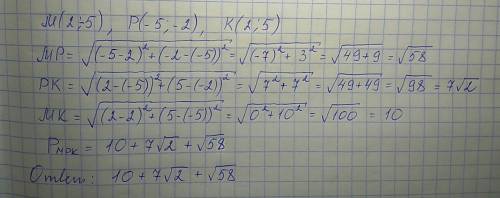 M(2;-5)   P(-5;-2),   K(2;5)
MP = √((-5-2)² + (-2-(-5))²) = √((-7)² + 3²) = √(49+9) = √58
PK = √((2-(-5))² + (5-(-2))²) = √(7² + 7²) = √(49+49) = √98 = 7√2
MK = √((2-2)² + (5-(-5))²) = √(0² + 10²) = √100 = 10
P_MPK = 10 + 7√2 + √58
Ответ: 10 + 7√2 + √58